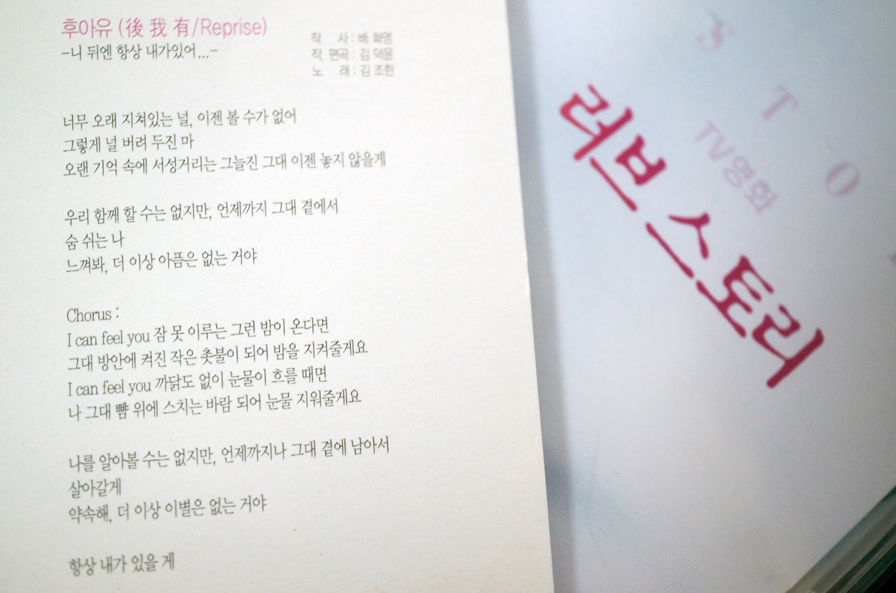 후아유 (後 我 有/Reprise)
-니 뒤엔 항상 내가있어...-
작 사 : 배 화영
작, 편곡 : 김 덕윤
노 래 : 김 조한
너무 오래 지쳐있는 널, 이젠 볼 수가 없어
그렇게 널 버려 두진 마
오랜 기억 속에 서성거리는 그늘진 그대 이젠 놓지 않을게
우리 함께 할 수는 없지만, 언제까지 그대 곁에서
숨 쉬는 나
느껴봐, 더 이상 아픔은 없는 거야
Chorus :
I can feel you 잠 못 이루는 그런 밤이 온다면
그대 방안에 켜진 작은 촛불이 되어 밤을 지켜줄게요
I can feel you 까닭도 없이 눈물이 흐를 때면
나 그대 뺨 위에 스치는 바람 되어 눈물 지워줄게요
나를 알아볼 수는 없지만, 언제까지나 그대 곁에 남아서
살아갈게
약속해, 더 이상 이별은 없는 거야
항상 내가 있을 게
S T O
TV영화
러브 스토리